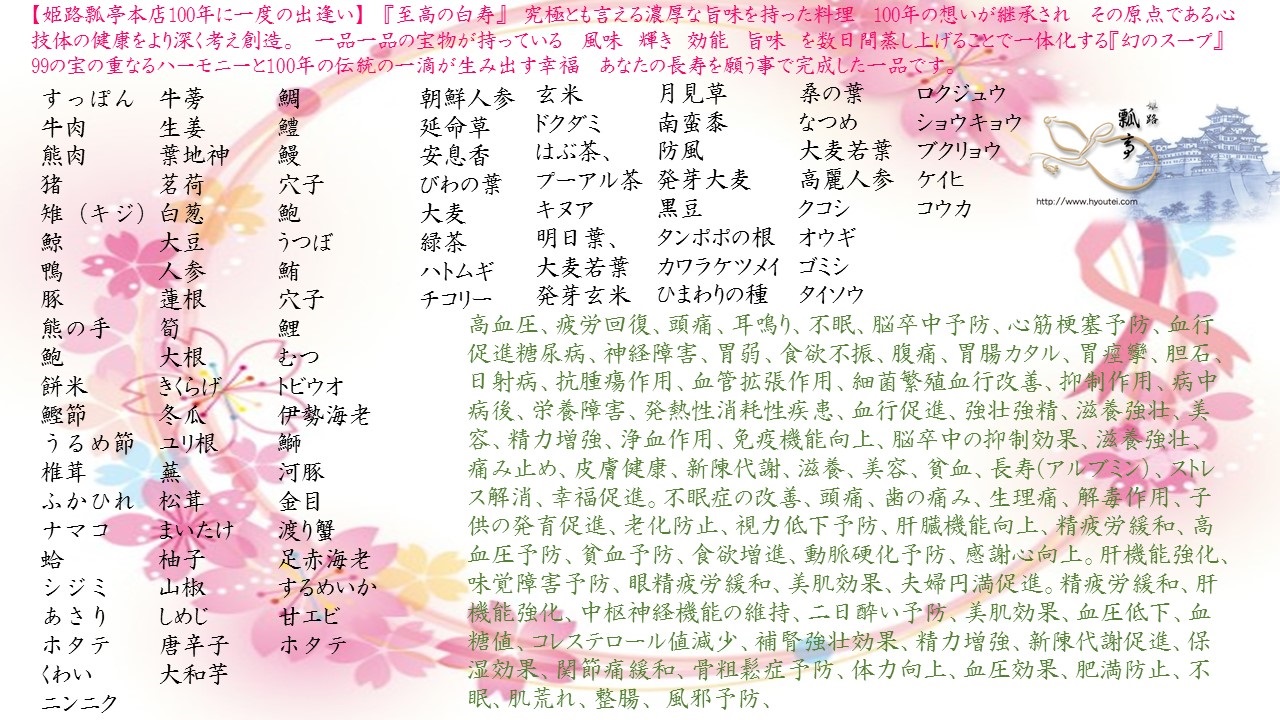 【姫路瓢亭本店100年に一度の出逢い】『至高の白寿』 究極とも言える濃厚な旨味を持った料理 100年の想いが継承され その原点である心
技体の健康をより深く考え創造。 一品一品の宝物が持っている 風味 輝き 効能 旨味 を数日間蒸し上げることで一体化する『幻のスープ』
99の宝の重なるハーモニーと100年の伝統の一滴が生み出す幸福 あなたの長寿を願う事で完成した一品です。
すっぽん
牛肉
熊肉
猪
雉（キジ）
鯨
鴨
豚
熊の手
鮑
餅米
鰹節
うるめ節
椎茸
ふかひれ
ナマコ
蛤
シジミ
あさり
ホタテ
くわい
ニンニク
牛蒡
生姜
葉地神
茗荷
白葱
大豆
人参
蓮根
筍
大根
きくらげ
冬瓜
ユリ根
蕪
松茸
まいたけ
柚子
山椒
しめじ
唐辛子
大和芋
鯛
鱧
鰻
穴子
鮑
うつぼ
鮪
穴子
鯉
むつ
トビウオ
伊勢海老
鰤
河豚
金目
渡り蟹
足赤海老
するめいか
甘エビ
ホタテ
朝鮮人参
延命草
安息香
びわの葉
大麦
緑茶
ハトムギ
チコリー
玄米
ドクダミ
はぶ茶、
プーアル茶
キヌア
明日葉、
大麦若葉
発芽玄米
月見草
南蛮黍
防風
発芽大麦
黒豆
タンポポの根
カワラケツメイ
ひまわりの種
桑の葉
なつめ
大麦若葉
高麗人参
クコシ
オウギ
ゴミシ
タイソウ
ロクジュウ
ショウキョウ
ブクリョウ
ケイヒ
コウカ
姫路
瓢亭
http://www.hyoutei.com/
高血圧、疲労回復、頭痛、耳鳴り、不眠、脳卒中予防、心筋梗塞予防、血行
促進糖尿病、神経障害、胃弱、食欲不振、腹痛、胃腸カタル、胃痙攣、胆石、
日射病、抗腫瘍作用、血管拡張作用、細菌繁殖血行改善、抑制作用、病中
病後、栄養障害、発熱性消耗性疾患、血行促進、強壮強精、滋養強壮、美
容、精力増強、浄血作用、免疫機能向上、脳卒中の抑制効果、滋養強壮、
痛み止め、皮膚健康、新陳代謝、滋養、美容、貧血、長寿(アルブミン)、ストレ
ス解消、幸福促進。不眠症の改善、頭痛、歯の痛み、生理痛、解毒作用、子
供の発育促進、老化防止、視力低下予防、肝臓機能向上、精疲労緩和、高
血圧予防、貧血予防、食欲増進、動脈硬化予防、感謝心向上。肝機能強化、
味覚障害予防、眼精疲労緩和、美肌効果、夫婦円満促進。精疲労緩和、肝
機能強化、中枢神経機能の維持、二日酔い予防、美肌効果、血圧低下、血
糖値、コレステロール値減少、補腎強壮効果、精力増強、新陳代謝促進、保
湿効果、関節痛緩和、骨粗鬆症予防、体力向上、血圧効果、肥満防止、不
眠、肌荒れ、整腸、 風邪予防、